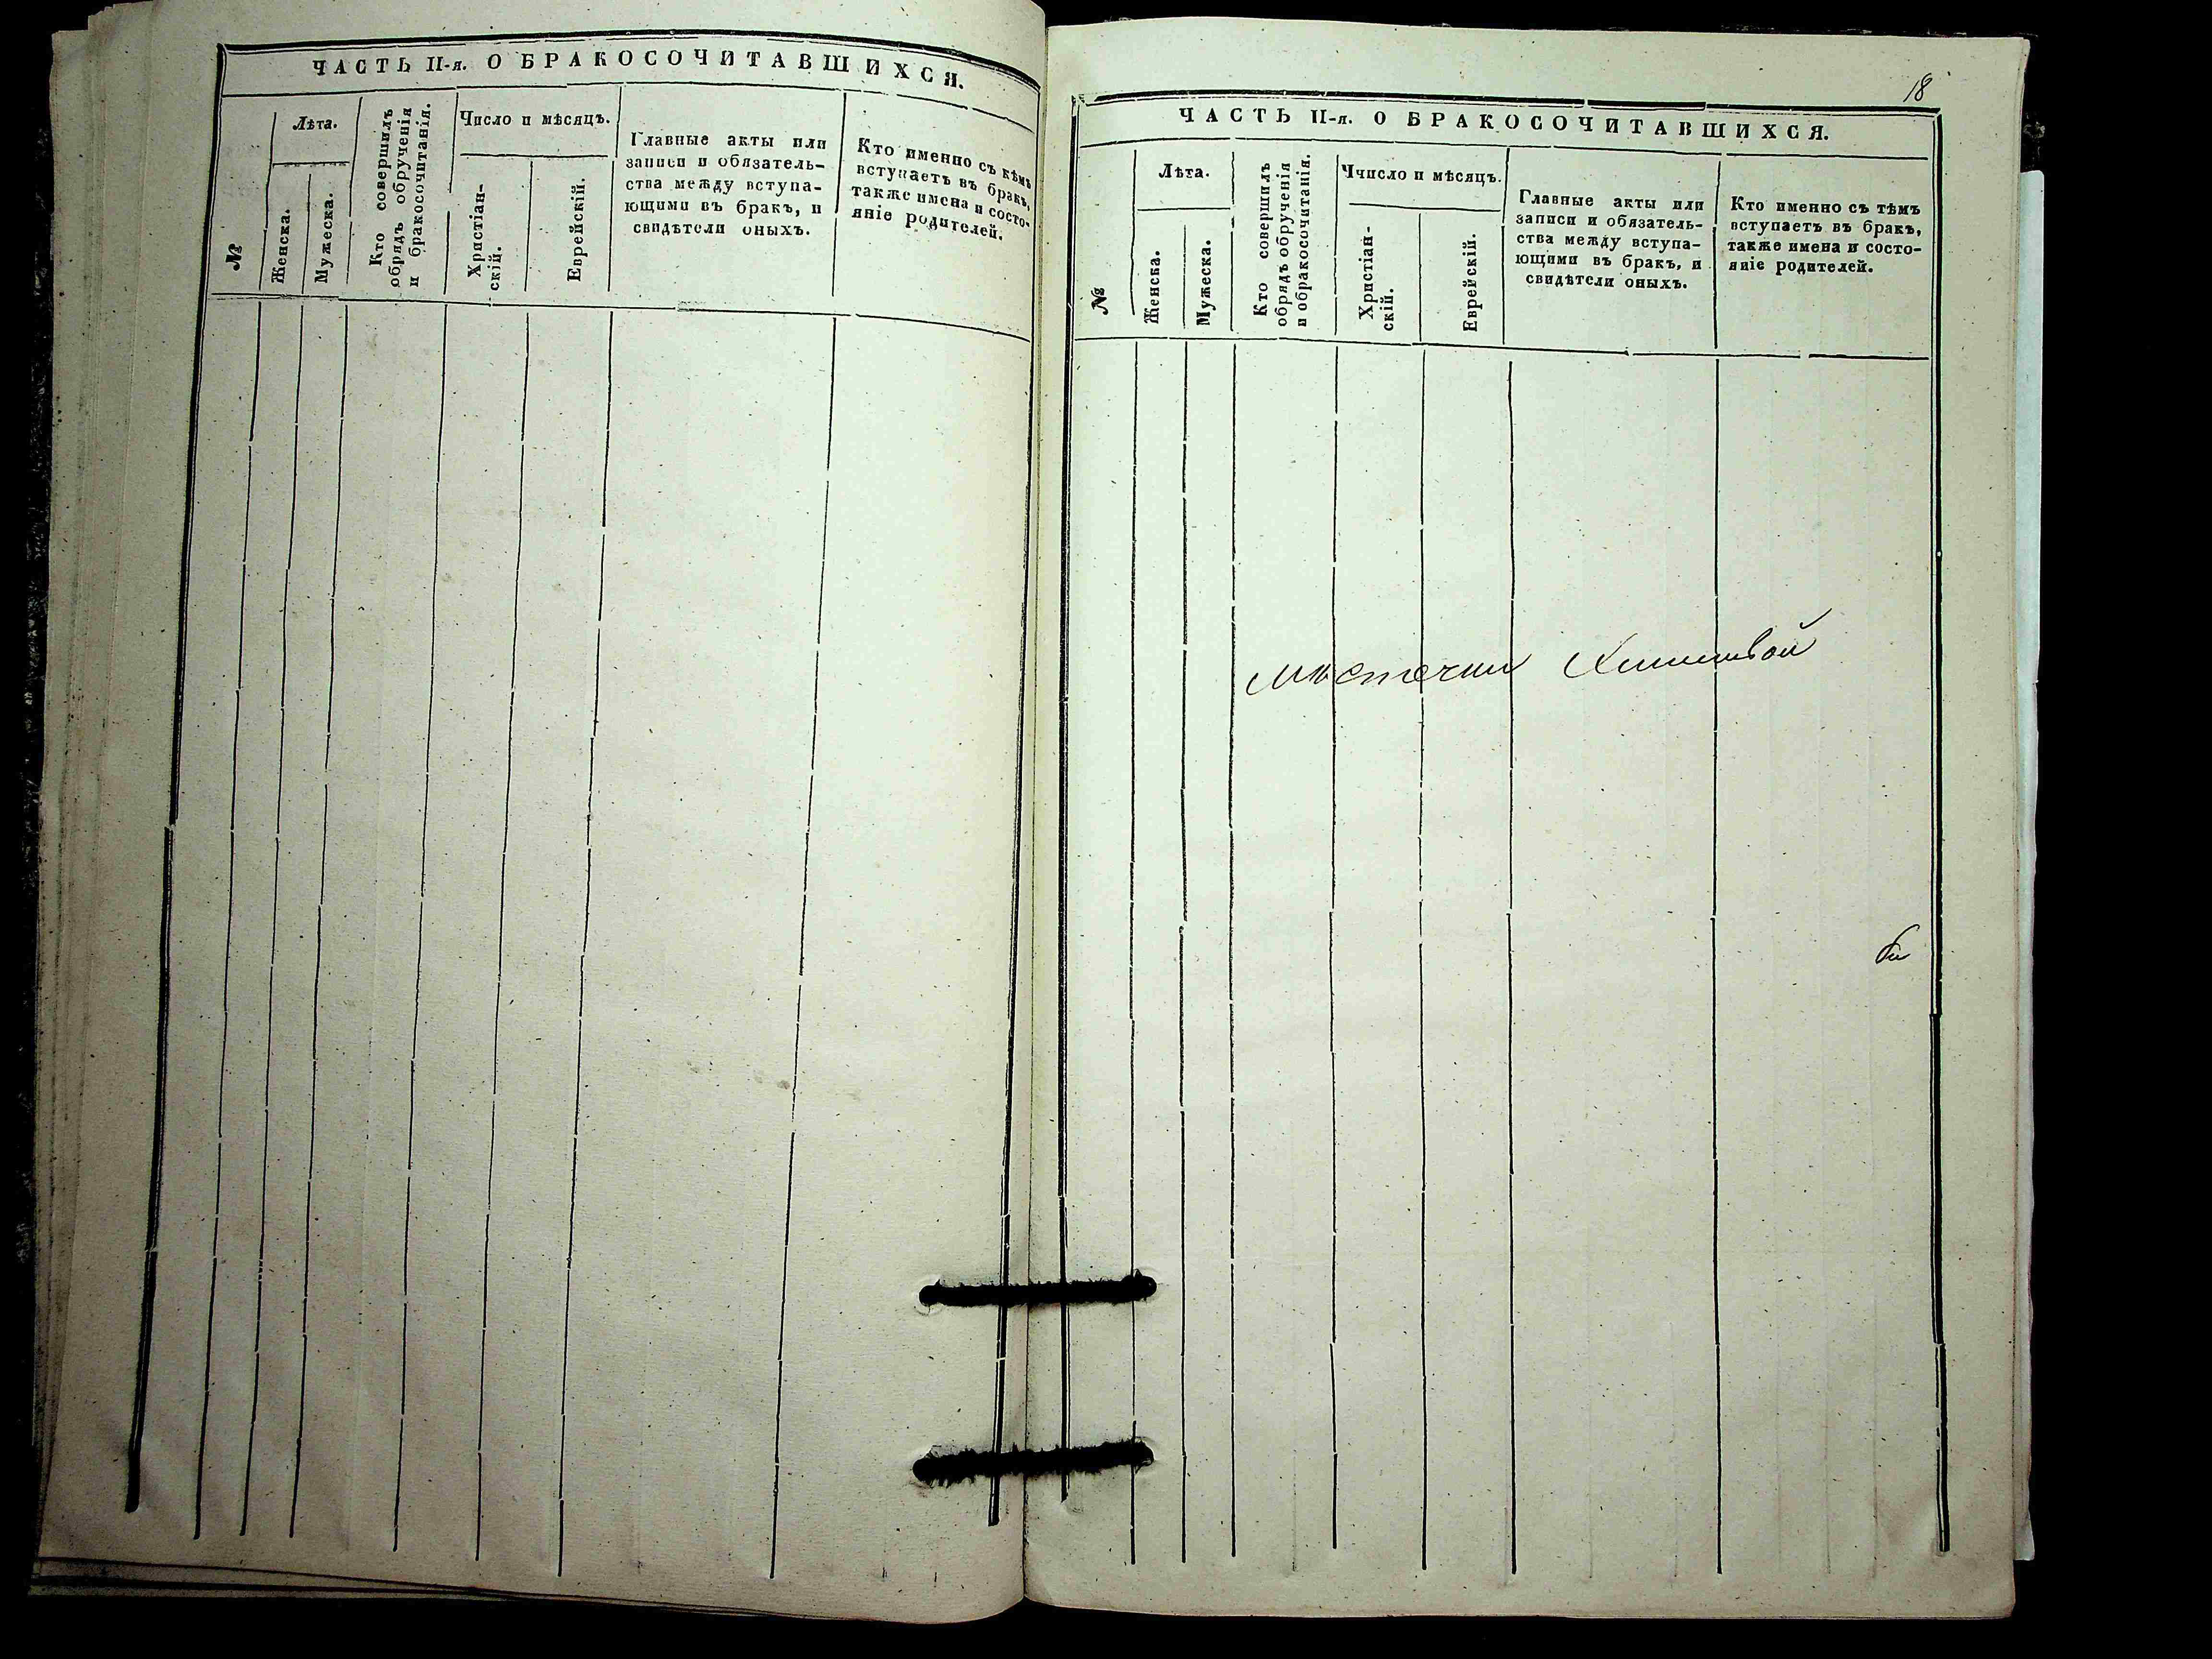 ЧАСТЬ II-я. О БРАКОСОЧИТАВШИХСЯ.
№
Лѣта.
Женска.
Мужеска.
Кто совершилъ
обрядъ обрученія
и бракосочитанія.
Число и мѣсяцъ.
Христіан-
скій.
Еврейскій.
Главные акты или
записи и обязатель-
ства между вступа-
ющими въ бракъ, и
свидѣтели оныхъ.
Кто именно съ кѣмъ
вступаетъ въ бракъ,
также имена и состо-
яніе родителей.
18
ЧАСТЬ II-я. О БРАКОСОЧИТАВШИХСЯ.
№
Лѣта.
Женска.
Мужеска.
Кто совершилъ
обрядъ обрученія
и обракосочитанія.
Ччисло и мѣсяцъ.
Христіан-
скій.
Еврейскій.
Главные акты или
записи и обязатель-
ства между вступа-
ющими въ бракъ, и
свидѣтели оныхъ.
Кто именно съ тѣмъ
вступаетъ въ бракъ,
также имена и состо-
яніе родителей.